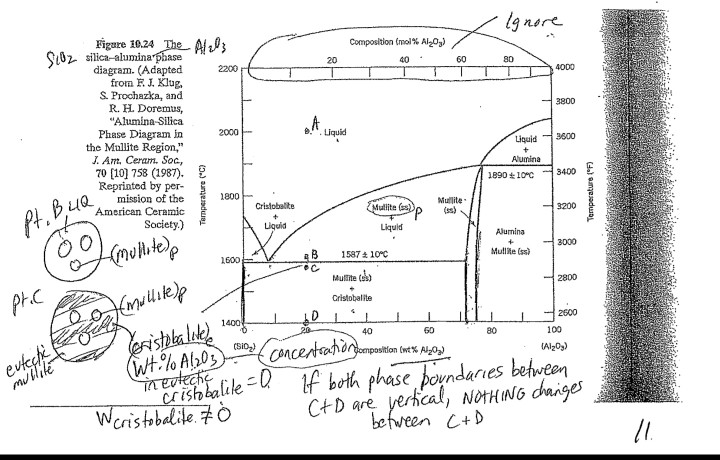 Ignore
SiO2
Al2O3
Figure 10.24 The
silica–alumina phase
diagram. (Adapted
from F. J. Klug,
S. Prochazka, and
R. H. Doremus,
"Alumina-Silica
Phase Diagram in
the Mullite Region,"
J. Am. Ceram. Soc.,
70 [10] 758 (1987).
Reprinted by per-
mission of the
American Ceramic
Society.)
Composition (mol% Al2O3)
20 40 60 80
2200
2000
1800
1600
1400
Temperature (°C)
4000
3800
3600
3400
3200
3000
2800
2600
Temperature (°F)
A
Liquid
Liquid
+
Alumina
1890 ± 10°C
Cristobalite
+
Liquid
Mullite (ss) P
+
Liquid
Mullite
(ss)
Alumina
+
Mullite (ss)
B
1587 ± 10°C
C
Mullite (ss)
+
Cristobalite
D
0 20 40 60 80 100
(SiO2)
Composition (wt% Al2O3)
(Al2O3)
pt. B LIQ
(mullite)p
pt. C
(mullite)p
eutectic
mullite
cristobalite
Wt.% Al2O3
in eutectic
cristobalite = 0
concentration
Wcristobalite ≠ 0
If both phase boundaries between
C+D are vertical, NOTHING changes
between C+D
11.